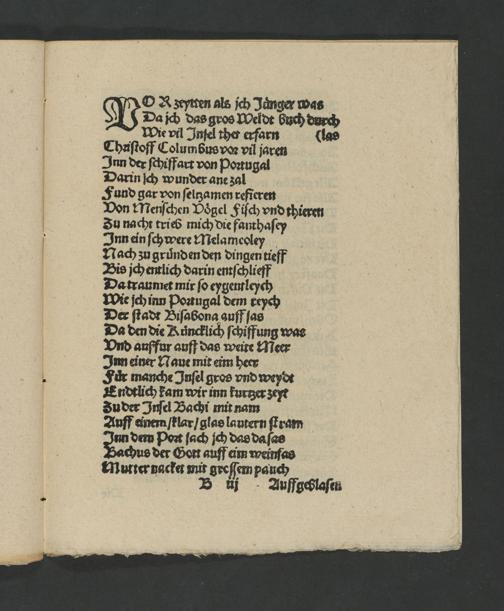 VOR zeytten als jch Jünger was
Da jch das gros Weldt buch durch
Wie vil Jnsel ther erfarn (las
Christoff Columbus vor vil jaren
Jnn der schiffart von Portugal
Darin jch wunder ane zal
Fund gar von seltzamen refieren
Von Menschen Vögel Fisch vnd thieren
Zu nacht trieb mich die fanthasey
Jnn ein schwere Melamcoley
Nach zu gründen den dingen tieff
Bis jch entlich darin entschlieff
Da traumet mir so eygentleych
Wie jch inn Portugal dem reych
Der stadt Bisabona auff sas
Da den die Küncklich schiffung was
Vnd ausfur auff das weite Meer
Jnn einer Naue mit eim heer
Für manche Jnsel gros vnd weydt
Endtlich kam wir inn kurtzer zeyt
Zu der Jnsel Bachi mit nam
Auff einem/klar/glas lautern stram
Jnn dem Port sach jch das da sas
Bachus der Gott auff eim weinfas
Mutter nacket mit grossem pauch
B iij Auffgeblasen